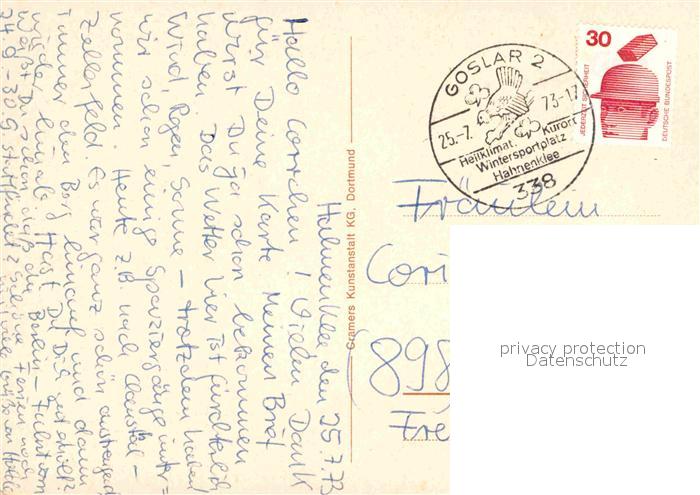 Hahnenklee den 25.7.73
Hallo Corrchen! Vielen Dank
für Deine Karte. Meinen Brief
wirst Du ja schon bekommen
haben. Das Wetter hier ist fürchterlich
Wind, Regen, Sonne – trotzdem haben
wir schon einige Spaziergänge unter=
nommen. Heute z.B. nach Clausthal –
Zellerfeld. Es war ganz schön anstrengend
immer den Berg hinauf und dann
wieder hinab. Hast Du Dich
Weißt Du schon daß die Berlin – Fahrt vom
24.9. – 30.9. stattfindet?
Cramers Kunstanstalt KG, Dortmund
GOSLAR 2
25.-7. 73-17
Heilklimat. Kurort
Wintersportplatz
Hahnenklee
338
30
JEDERZEIT SICHERHEIT
DEUTSCHE BUNDESPOST
Fräulein
Cori
898
Fre
privacy protection
Datenschutz